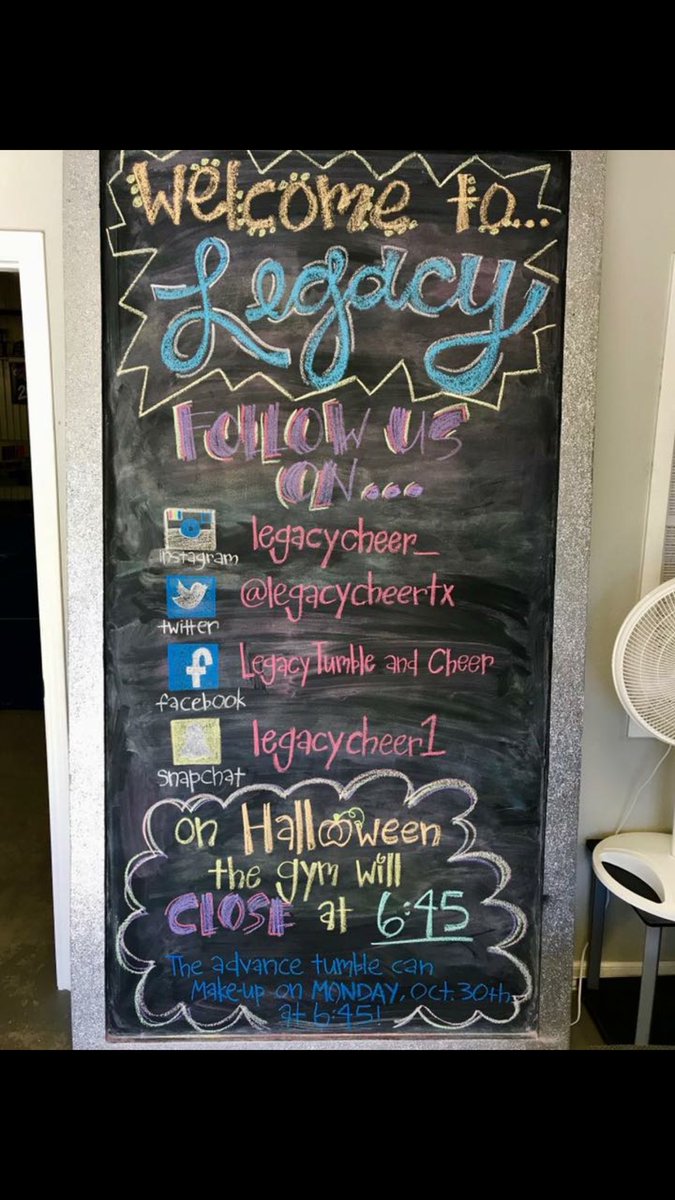 Welcome to...
Legacy
FOLLOW US
ON...
instagram legacycheer_
twitter @legacycheertx
f
facebook Legacy Tumble and Cheer
snapchat legacycheer1
on Halloween
the gym will
CLOSE at 6:45
The advance tumble can
Make-up on MONDAY, Oct. 30th
at 6:45!